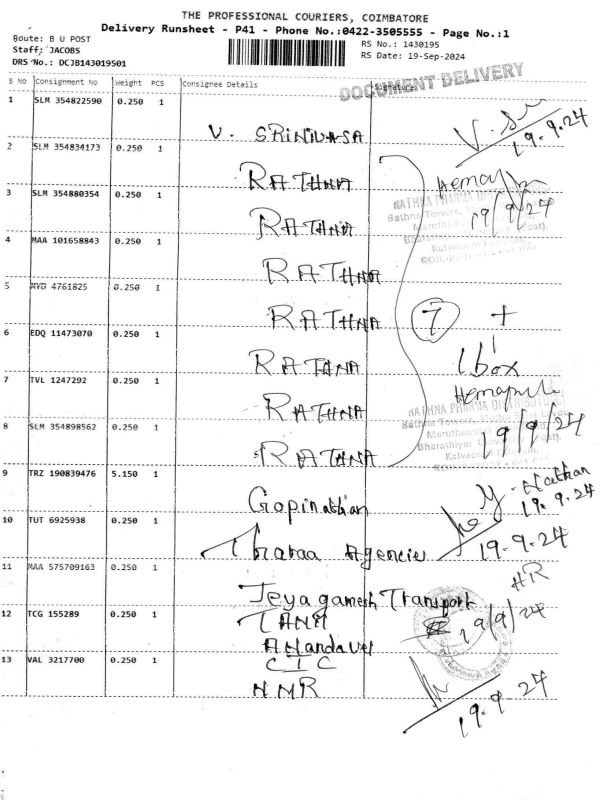 THE PROFESSIONAL COURIERS, COIMBATORE
Delivery Runsheet - P41 - Phone No.:0422-3505555 - Page No.:1
Route: B U POST
Staff: JACOBS
DRS No.: DCJB143019501
RS No.: 1430195
RS Date: 19-Sep-2024
DOCUMENT DELIVERY
S No Consignment No Weight PCS Consignee Details Signature
1 SLM 354822590 0.250 1 V. SRINIVASA
19.9.24
2 SLM 354834173 0.250 1 RATHNA
19/9/24
3 SLM 354880354 0.250 1 RATHNA
4 MAA 101658843 0.250 1 RATHNA
5 4761825 0.250 1 RATHNA
7 +
6 EDQ 11473070 0.250 1 RATHNA
1 box
7 TVL 1247292 0.250 1 RATHNA
RATHNA PHARMA
19/9/24
8 SLM 354898562 0.250 1 RATHNA
9 TRZ 190839476 5.150 1 Gopinathan
19.9.24
10 TUT 6925938 0.250 1 Agencies
19.9.24
11 MAA 575709163 0.250 1 Jeya ganesh Transport
HR
12 TCG 155289 0.250 1
19/9/24
13 VAL 3217700 0.250 1 CTC
HMR
19.9.24